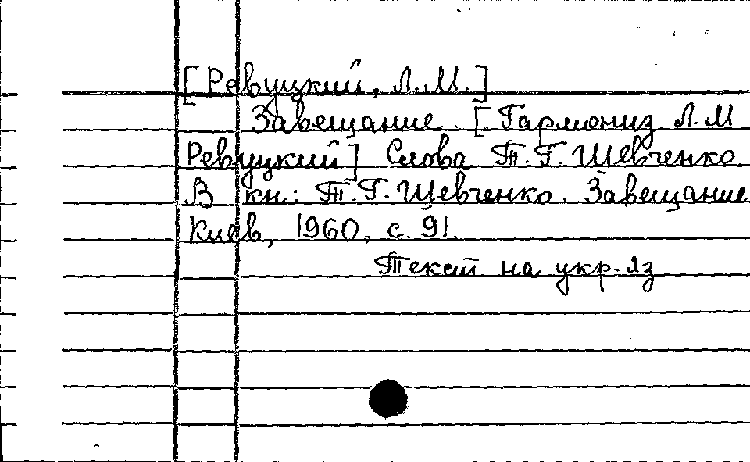 [Ревуцкий, Л.М.]
Завещание. [Гармониз Л.М
Ревуцкий] Слова Т.Г.Шевченко
В кн.: Т.Г.Шевченко. Завещание
Киев, 1960, с. 91.
Текст на укр. яз